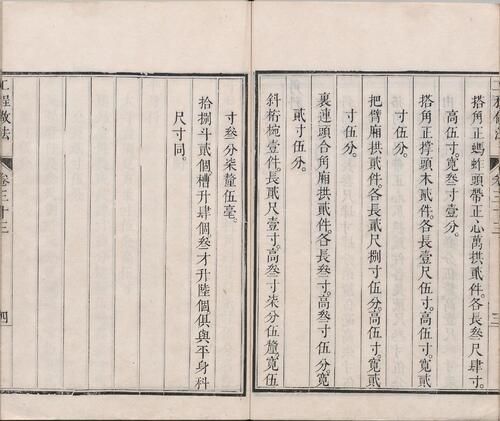 搭角正螞蚱頭帶正心萬拱貳件。各長叁尺肆寸。
高伍寸。寬叁寸壹分。
搭角正撐頭木貳件。各長壹尺伍寸。高伍寸。寬貳
寸伍分。
把臂廂拱貳件。各長貳尺捌寸伍分。高伍寸。寬貳
寸伍分。
裏連頭合角廂拱貳件。各長叁寸。高叁寸伍分。寬
貳寸伍分。
斜桁椀壹件。長貳尺壹寸。高叁寸柒分伍釐。寬伍
寸叁分柒釐伍毫。
拾捌斗貳個。槽升肆個。叁才升陸個。俱與平身科
尺寸同。
工程做法
卷三十三
四